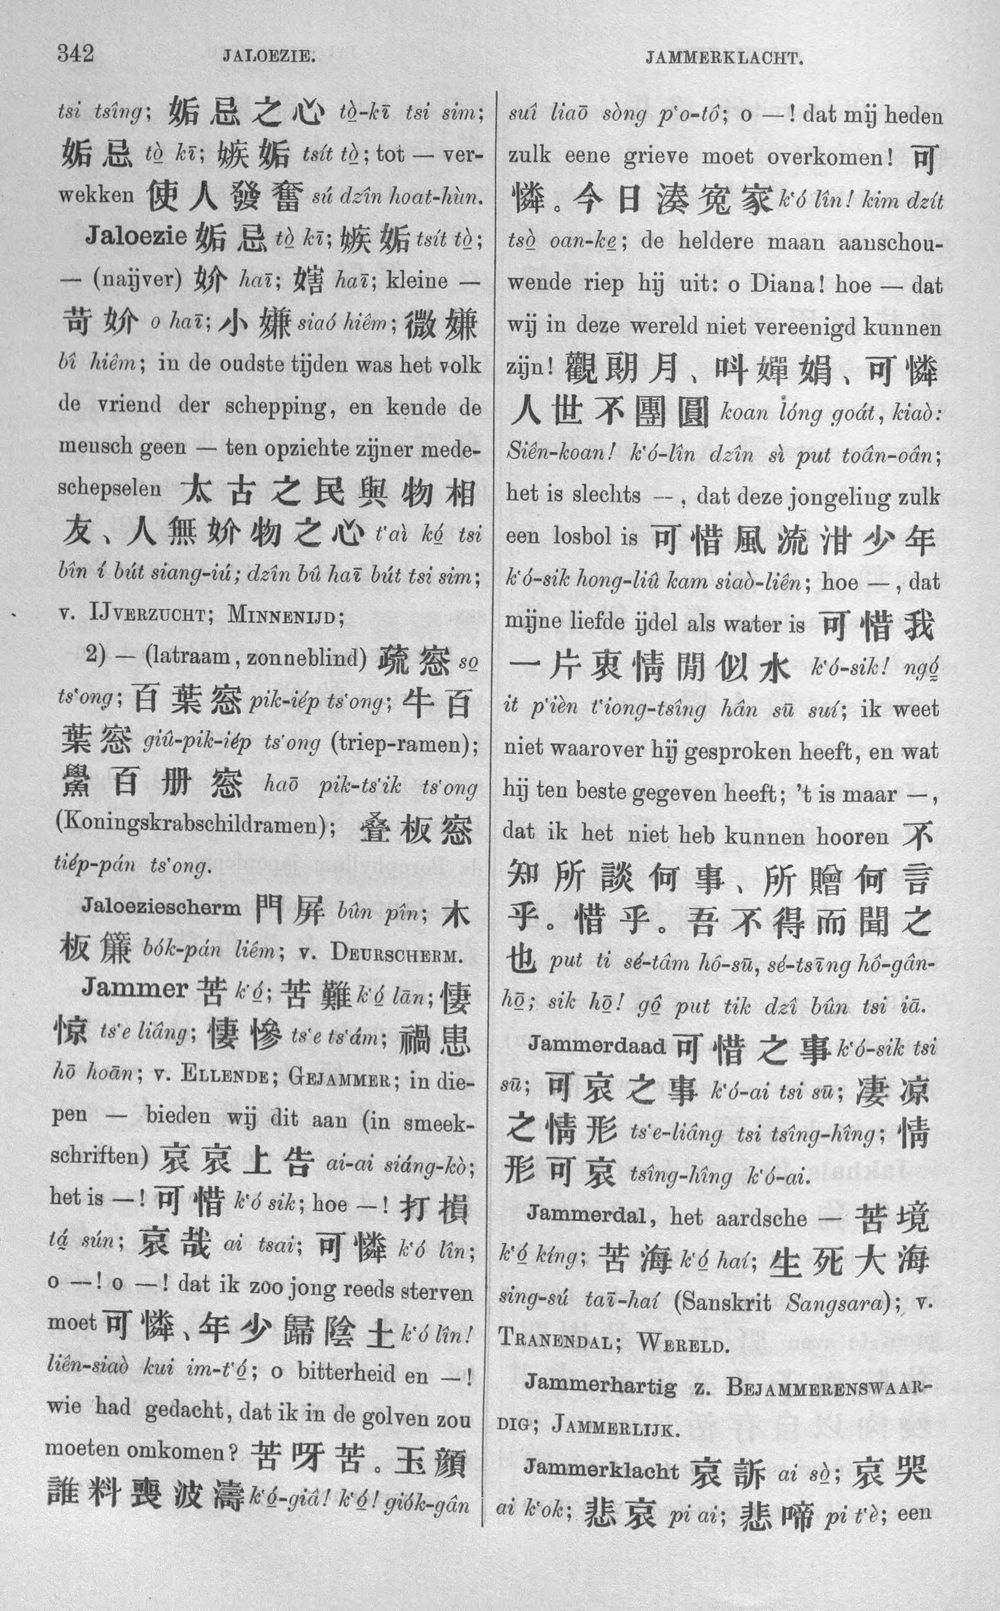 342
JALOEZIE.
JAMMERKLACHT.
tsi tsîng; 妬忌之心 tò̤-kī tsi sim;
妬忌 tò̤ kī; 嫉妬 tsít tò̤; tot — ver-
wekken 使人發奮 sú dzîn hoat-hùn.
Jaloezie 妬忌 tò̤ kī; 嫉妬 tsít tò̤;
— (naijver) 妎 haī; 嫐 haī; kleine —
苛妎 o haī; 小嫌 siaó hiêm; 微嫌
bî hiêm; in de oudste tijden was het volk
de vriend der schepping, en kende de
mensch geen — ten opzichte zijner mede-
schepselen 太古之民與物相
友、人無妎物之心 t‘aì kó̤ tsi
bîn í bút siang-iú; dzîn bû haī bút tsi sim;
v. IJVERZUCHT; MINNENIJD;
2) — (latraam, zonneblind) 疏窓 so̤
ts‘ong; 百葉窓 pik-iép ts‘ong; 牛百
葉窓 giû-pik-iép ts‘ong (triep-ramen);
鱟百册窓 haō pik-ts‘ik ts‘ong
(Koningskrabschildramen); 叠板窓
tiép-pán ts‘ong.
Jaloeziescherm 門屏 bûn pîn; 木
板簾 bók-pán liêm; v. DEURSCHERM.
Jammer 苦 k‘ó̤; 苦難 k‘ó̤ lān; 悽
惊 ts‘e liâng; 悽慘 ts‘e ts‘ám; 禍患
hō hoān; v. ELLENDE; GEJAMMER; in die-
pen — bieden wij dit aan (in smeek-
schriften) 哀哀上告 ai-ai siáng-kò;
het is —! 可惜 k‘ó sik; hoe —! 打損
tá̤ sún; 哀哉 ai tsai; 可憐 k‘ó lîn;
o —! o —! dat ik zoo jong reeds sterven
moet 可憐、年少歸陰土 k‘ó lîn!
liên-siaò kui im-t‘ó̤; o bitterheid en —!
wie had gedacht, dat ik in de golven zou
moeten omkomen? 苦呀苦。玉顏
誰料喪波濤 k‘ó̤-giâ! k‘ó̤! giók-gân
suî liaō sòng p‘o-tô; o —! dat mij heden
zulk eene grieve moet overkomen! 可
憐。今日湊寃家 k‘ó lîn! kim dzít
tsò̤ oan-ke̤; de heldere maan aanschou-
wende riep hij uit: o Diana! hoe — dat
wij in deze wereld niet vereenigd kunnen
zijn! 觀朗月、叫嬋娟、可憐
人世不團圓 koan lóng goát, kiaò:
Siên-koan! k‘ó-lîn dzîn sì put toân-oân;
het is slechts —, dat deze jongeling zulk
een losbol is 可惜風流泔少年
k‘ó-sik hong-liû kam siaò-liên; hoe —, dat
mijne liefde ijdel als water is 可惜我
一片衷情閒似水 k‘ó-sik! ngó̤
it p‘ièn t‘iong-tsîng hân sū suí; ik weet
niet waarover hij gesproken heeft, en wat
hij ten beste gegeven heeft; ’t is maar —,
dat ik het niet heb kunnen hooren 不
知所談何事、所贈何言
乎。惜乎。吾不得而聞之
也 put ti sé-tâm hô-sū, sé-tsīng hô-gân-
hō̤; sik hō̤! gô̤ put tik dzî bûn tsi iā.
Jammerdaad 可惜之事 k‘ó-sik tsi
sū; 可哀之事 k‘ó-ai tsi sū; 淒凉
之情形 ts‘e-liâng tsi tsîng-hîng; 情
形可哀 tsîng-hîng k‘ó-ai.
Jammerdal, het aardsche — 苦境
k‘ó̤ kíng; 苦海 k‘ó̤ haí; 生死大海
sing-sú taī-haí (Sanskrit Sangsara); v.
TRANENDAL; WERELD.
Jammerhartig z. BEJAMMERENSWAAR-
DIG; JAMMERLIJK.
Jammerklacht 哀訴 ai sò̤; 哀哭
ai k‘ok; 悲哀 pi ai; 悲啼 pi t‘è; een